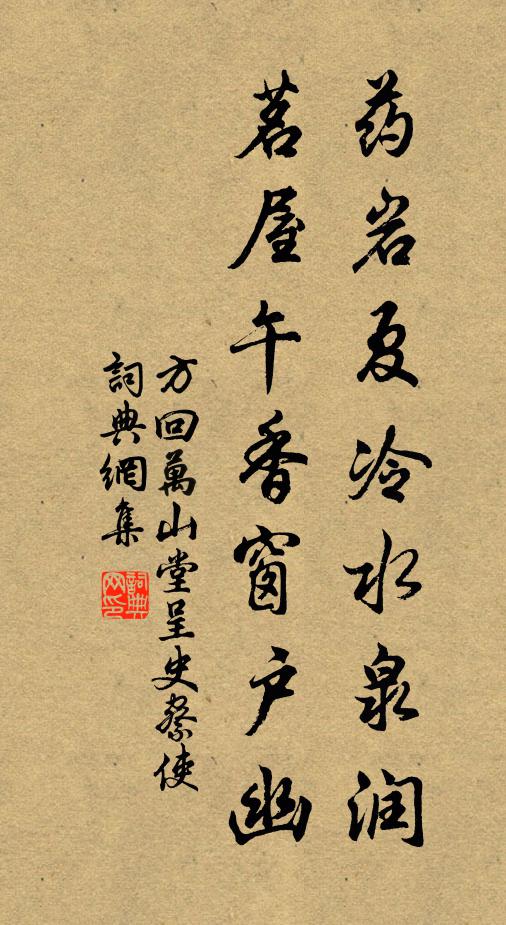 药岩夏冷水泉润
茗屋午香窗户幽
方回萬山堂呈史察使
詞典網集
詞典网印